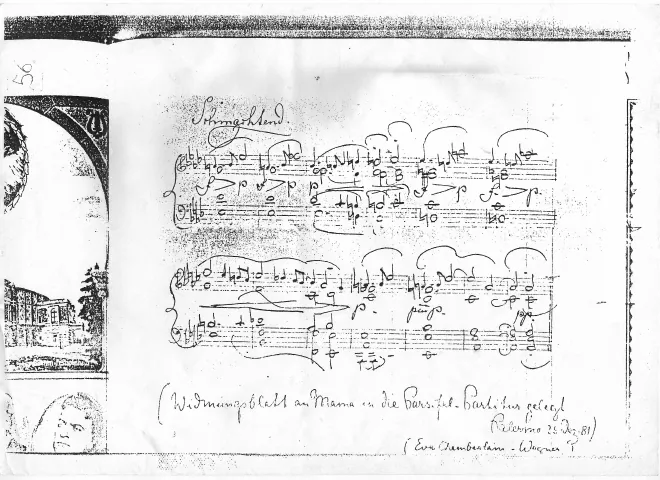 56.
Schmachtend.
p p p p p
p. piùp. pp
(Widmungsblatt an Mama in die Parsifal-Partitur gelegt
Palermo 25 Dez. 81)
(Eva Chamberlain-Wagner